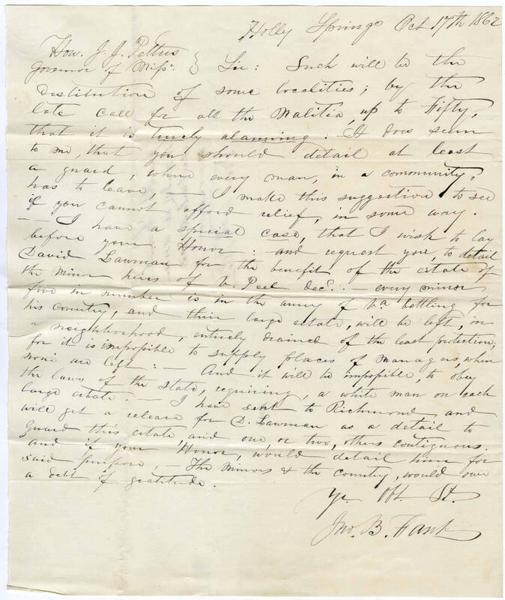 Holly Springs Oct 17th 1862
Hon. J. J. Pettus
Governor of Miss. } Sir: Such will be the
distitution of some localities; by the
late call for all the Malitia, up to fifty,
that it is truly alarming. It does seem
to me, that you should detail at least
a guard, where every man, in a community,
has to leave, — I make this suggestion to see
if you cannot afford relief, in some way.
— I have a special case, that I wish to lay
before your Honor: and request you, to detail
David Lawman for the benefit of the estate of
the minor heirs of Peel decd. — every minor
five in number is in the army of Va battling for
his country, and their large estate, will be left, in
a neighborhood, entirely drained of the least protection,
for it is impossible to supply places of managers, when
none are left: — And it will be impossible, to obey
the laws of the state, requiring, a white man on each
large estate. — I have sent to Richmond — and
will get a release for D. Lawman as a detail to
guard this estate and one, or two, others contiguous.
and if your Honor, would detail him for
said purpose, — The minors & the country, would owe
a debt of gratitude.
Yr. Obt St.
Jno. B. Fant